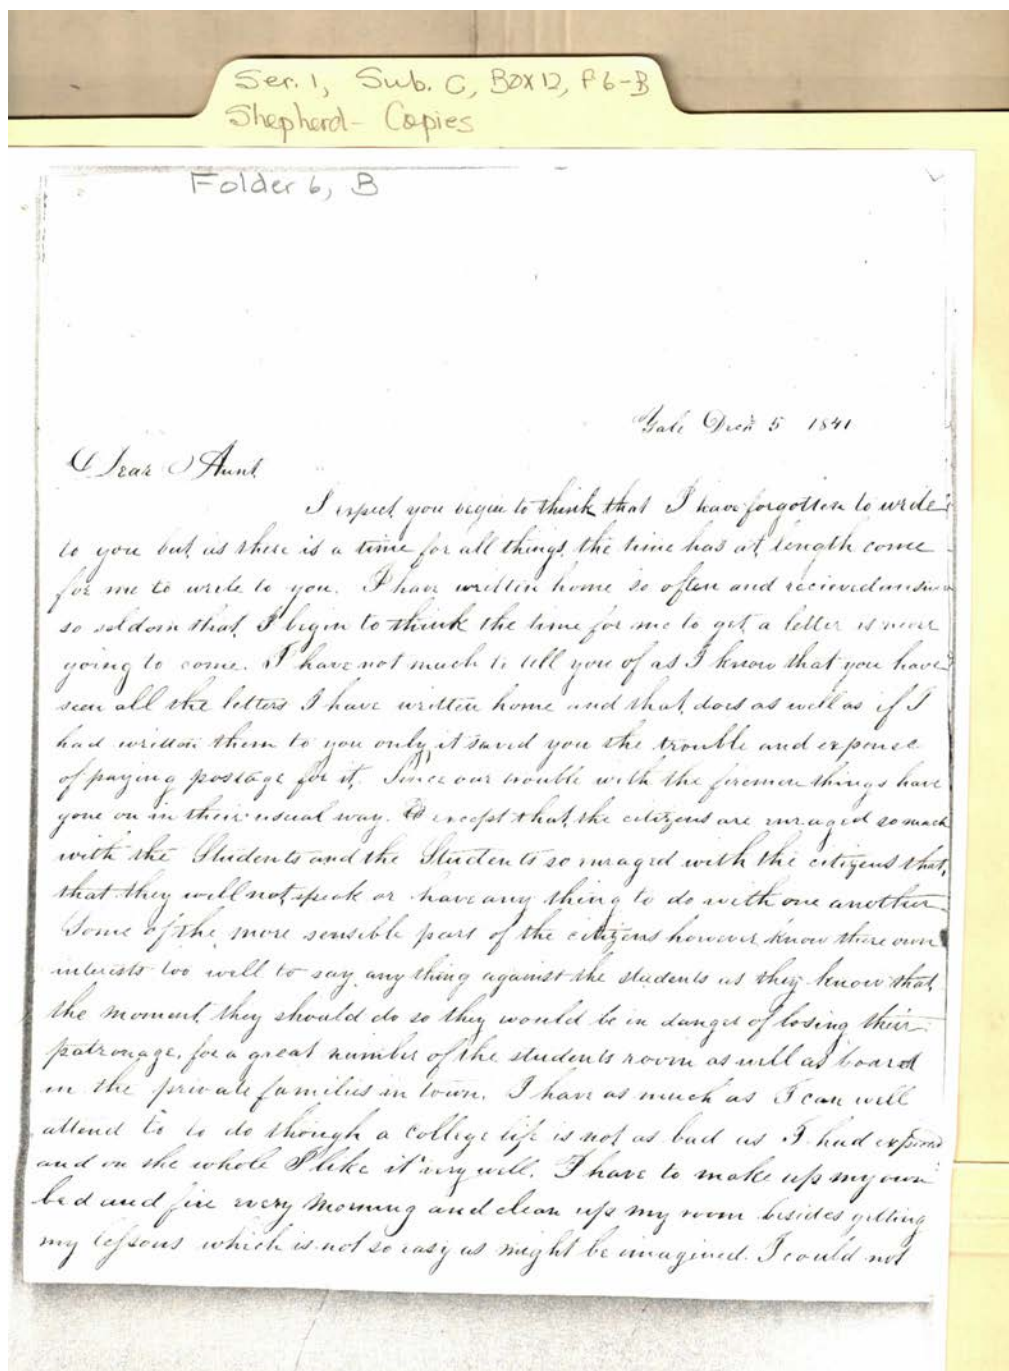 Ser. 1, Sub. C, Box 12, F6-B
Shepherd- Copies
Folder 6, B
Yale Decr 5 1841
Dear Aunt
I expect you begin to think that I have forgotten to write
to you but as there is a time for all things the time has at length come
for me to write to you. I have written home so often and recieved answers
so seldom that I begin to think the time for me to get a letter is never
going to come. I have not much to tell you of as I know that you have
seen all the letters I have written home and that does as well as if I
had written them to you only it saved you the trouble and expense
of paying postage for it. Since our trouble with the firemen things have
gone on in their usual way. except that the citizens are enraged so much
with the Students and the Students so enraged with the citizens that,
that they will not speak or have any thing to do with one another.
Some of the more sensible part of the citizens however know there own
interests too well to say any thing against the students as they know that
the moment they should do so they would be in danger of losing their
patronage, for a great number of the students room as well as board
in the private families in town. I have as much as I can well
attend to to do though a college life is not as bad as I had
and on the whole I like it very well. I have to make up my own
bed and fire every morning and clean up my room besides getting
my lessons which is not so easy as might be imagined. I could not